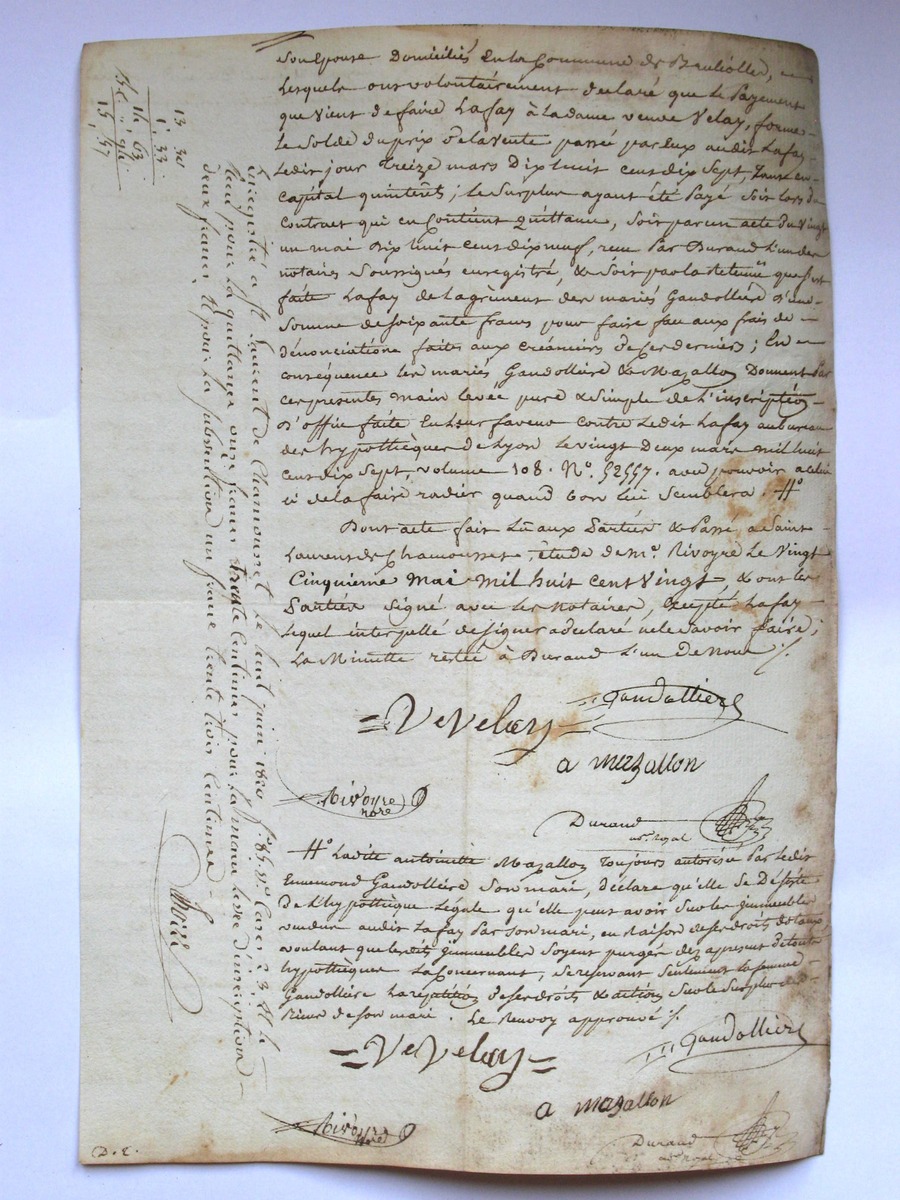 Son Epouse Domiciliés En la Commune de Brullolles,
Lesquels ont volontairement declaré que le Payement
que vient de faire Lafay à la dame veuve Velay, forme
le Solde du prix de la vente passé par Eux audit Lafay
Ledit jour treize mars Dix huit cent dix Sept, tant en
Capital qu'intérêts; Le Surplus ayant été Payé Soit lors du
Contrat qui en Contient quittance, Soit par un acte du Vingt
un mai Dix huit cent dix neuf, reçu Par Durand L'un des
notaires Soussignés enregistré, & Soit par la Retenue que s'est
faite Lafay de Lagrèment des mariés Gaudollière d'une
Somme de Soixante francs pour faire face aux frais de
dénonciations faites aux créanciers de ces derniers; En
conséquence les mariés Gaudollière & Mazallon Donnent Par
ces présentes main levée pure & Simple de L'inscription
d'office faite En Leur faveur contre Ledit Lafay au bureau
des hypothèques de Lyon Le vingt Deux mars mil huit
Cent dix Sept, volume 108. N.º 52557. avec pouvoir a celui
ci de la faire radier quand bon Lui Semblera. Hº
Dont acte fait Lu aux Parties & Passé a Saint
Laurent de Chamousset, étude de mᵉ. Rivoyre Le Vingt
Cinquieme Mai Mil huit Cent Vingt, & ont les
Parties Signé avec les Notaires, Excepté Lafay
Lequel interpellé de Signer a déclaré ne le Savoir faire;
La Minutte restée à Durand L'un de Nous ./.
= Ve Velay =
Gaudollière
a mazallon
Rivoyre
nore
Durand
nore. Royal
Hº Ladite antoinette Mazallon toujours autorisée Par Ledit
Ennemond Gaudollière Son mari, déclare qu'elle Se Désiste
de L'hypothèque Légale qu'elle peut avoir Sur les immeubles
vendus audit Lafay Par Son mari, en Raison de ses droits dotaux,
voulant que lesdits immeubles Soyent purgés dès apresent de toute
hypothèques La Concernant, se reservant Seulement La femme
Gaudollière La répétition de ses droits & actions Sur le Surplus des
Biens de Son mari. Le Renvoy approuvé ./.
= Ve Velay =
Gaudollière
a mazallon
Rivoyre
nore
Durand
nore Royal
Enregistré a St Laurent de Chamousset le huit juin 1820
pour la quittance onze francs trente centimes, pour la main levée d'inscription
deux francs & pour la subvention un franc trente trois centimes
13 30
1, 33
14, 63
D. E.